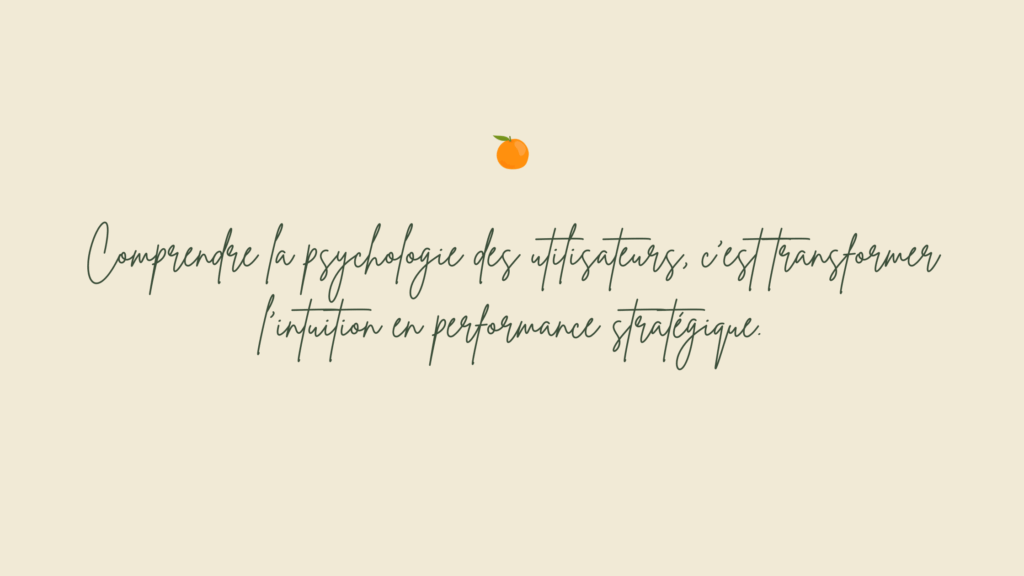 Comprendre la psychologie des utilisateurs, c'est transformer
l'intuition en performance stratégique.